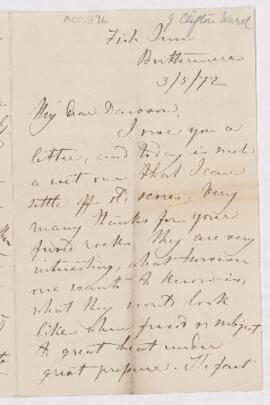 ACC.976
J. Clifton Ward
Fish Inn
Buttermere
3/5/72
My dear Dawson,
I owe you a
letter, and today is such
a wet one that I can
settle off old scores. Very
many thanks for your
fused rocks. They are very
interesting; what however
one wants to know is,
what they would look
like when fused or subject
to great heat under
great pressure. The fact